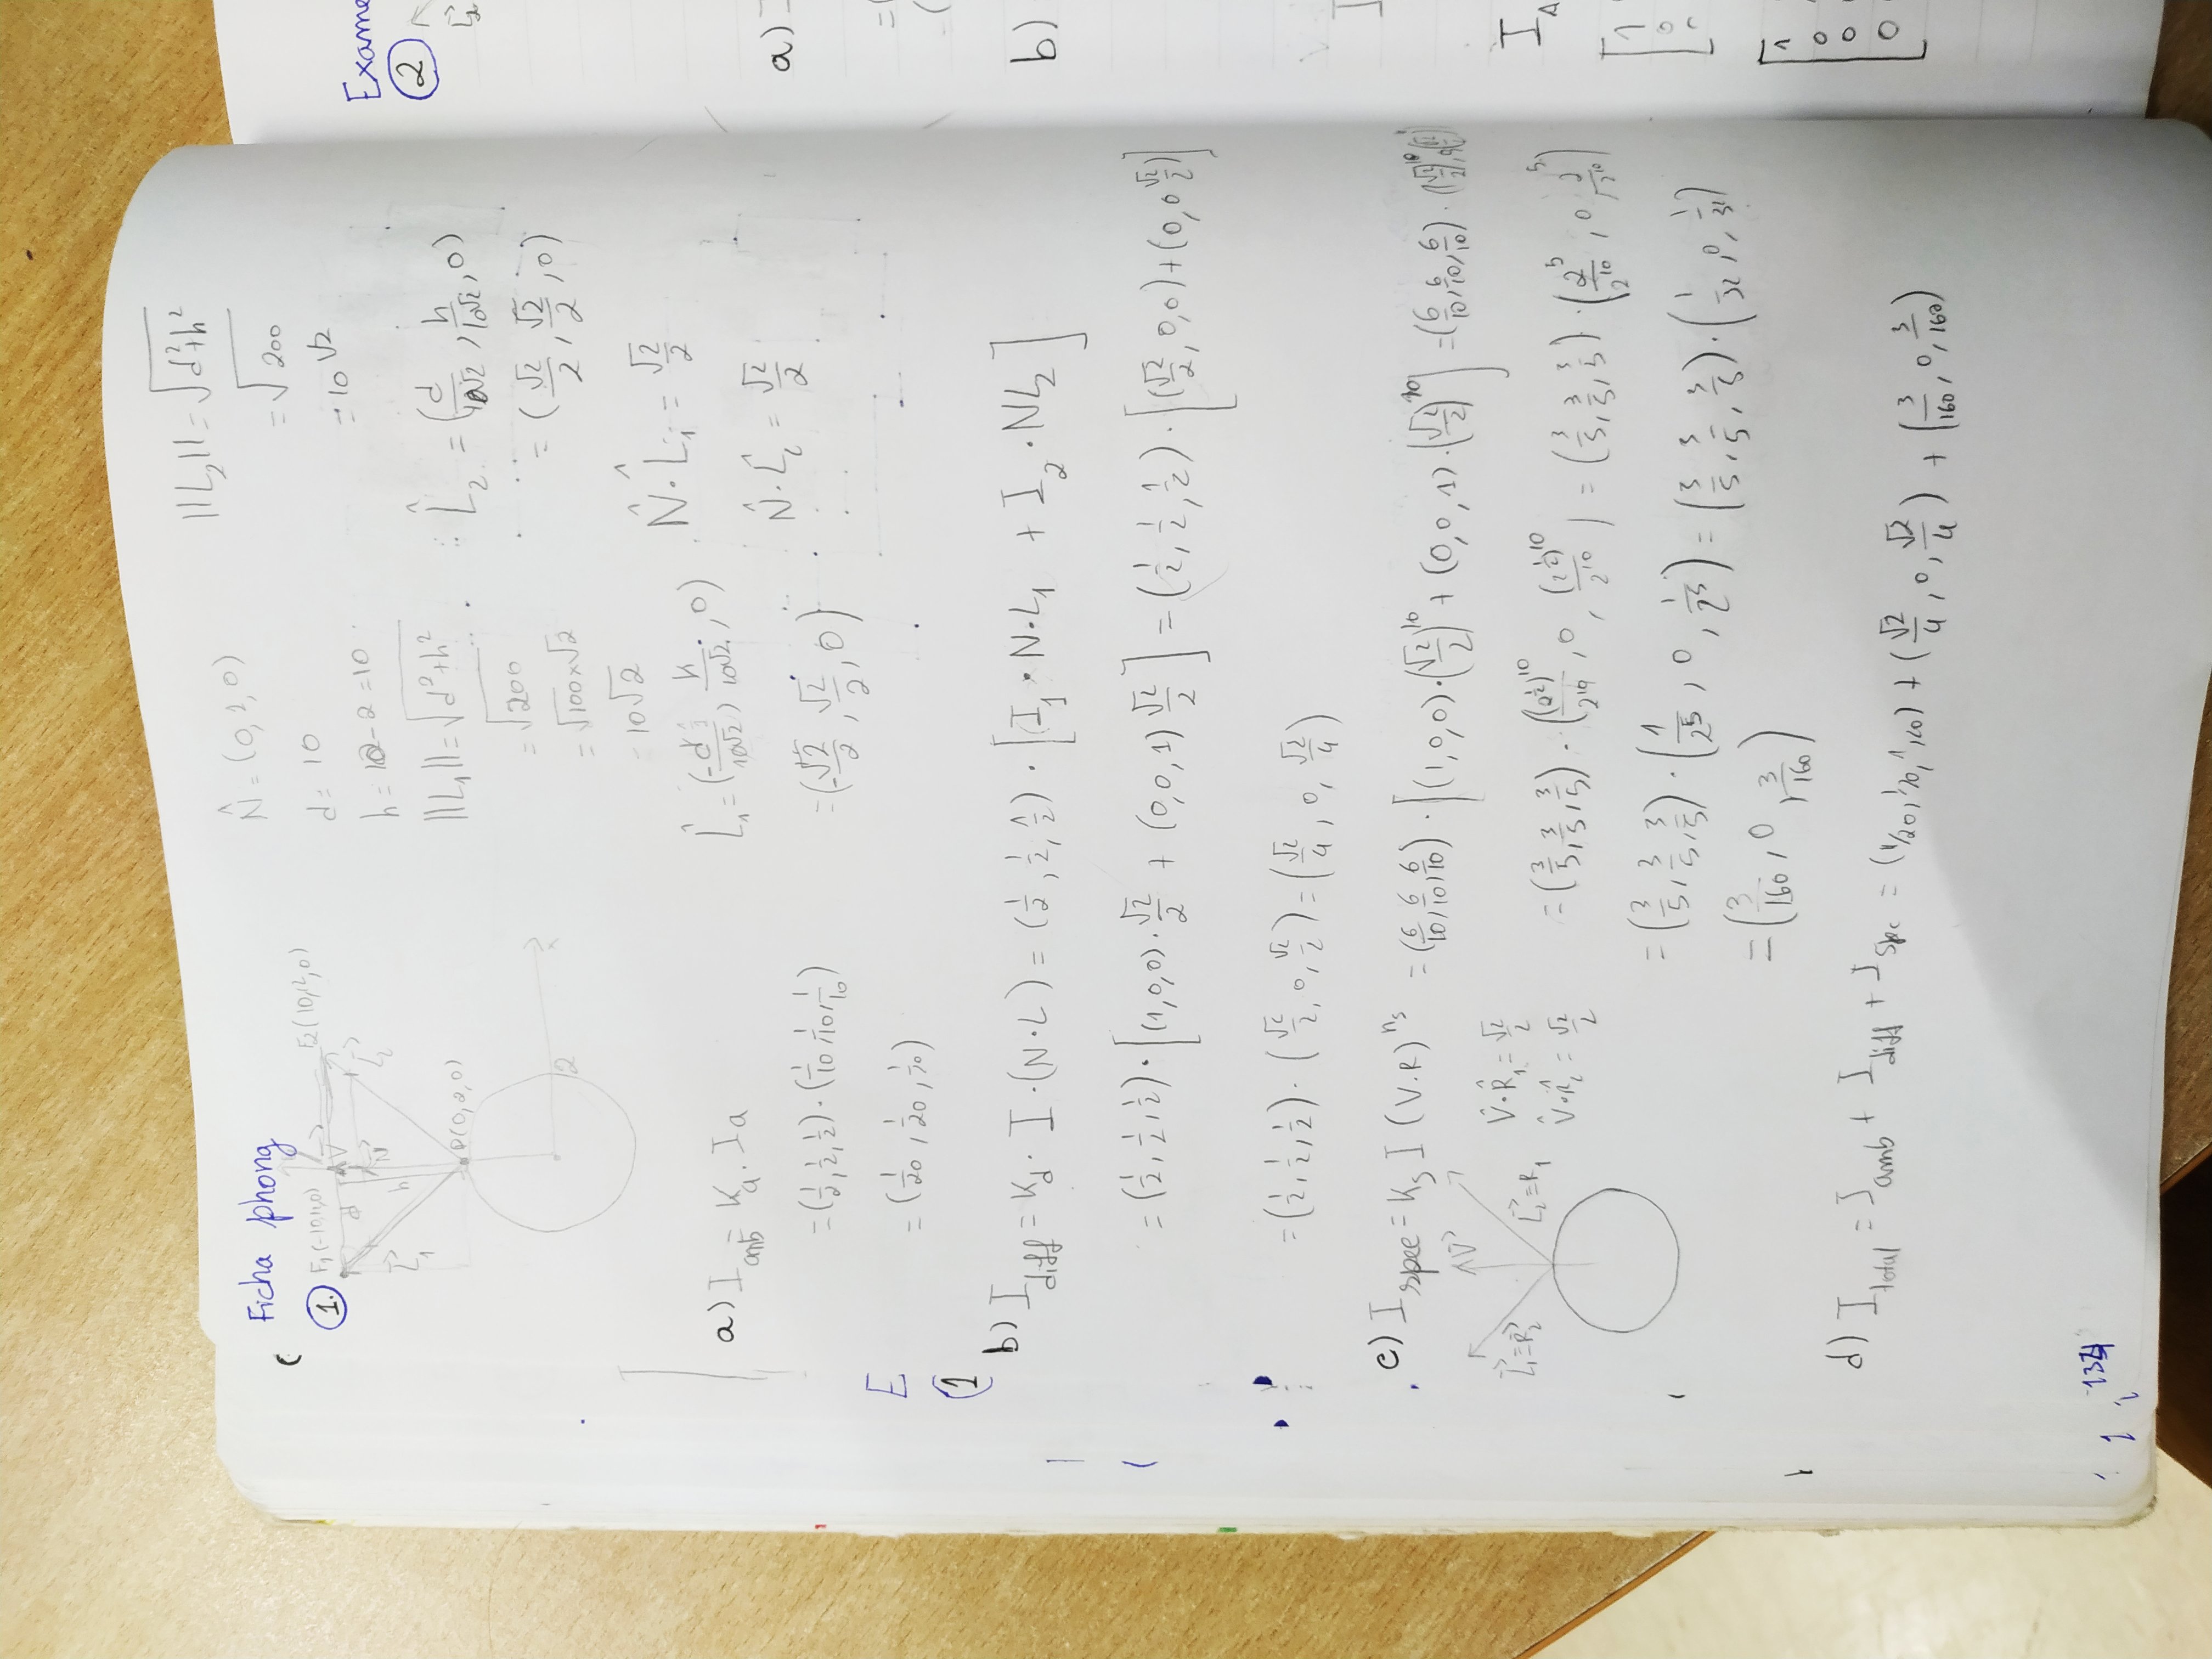 Ficha phong
1.
F₁(-10,12,0)
F2(10,12,0)
d
V⃗
N⃗
h
L⃗₁
L⃗₂
P(0,2,0)
2
x
N̂ = (0,1,0)
d = 10
h = 12-2 = 10
||L₁|| = √(d²+h²)
= √200
= √100×√2
= 10√2
L̂₁ = (-d/10√2, h/10√2, 0)
= (-√2/2, √2/2, 0)
||L₂|| = √(d²+h²)
= √200
= 10√2
L̂₂ = (d/10√2, h/10√2, 0)
= (√2/2, √2/2, 0)
N̂·L̂₁ = √2/2
N̂·L̂₂ = √2/2
a) I amb = Ka. Ia
= (1/2, 1/2, 1/2) · (1/10, 1/10, 1/10)
= (1/20, 1/20, 1/20)
E
(1
b) I diff = Kd · I · (N·L) = (1/2, 1/2, 1/2) · [I₁ · N·L₁ + I₂ · NL₂]
= (1/2, 1/2, 1/2) · [(1,0,0) · √2/2 + (0,0,1) √2/2] = (1/2, 1/2, 1/2) · [(√2/2, 0,0) + (0, 0 √2/2)]
= (1/2, 1/2, 1/2) · (√2/2, 0, √2/2) = (√2/4, 0, √2/4)
c) I spec = Ks I (V.R)^ns = (6/10, 6/10, 6/10) · [(1,0,0) · (√2/2)^10 + (0,0,1) · (√2/2)^10] = (6/10, 6/10, 6/10) · ((√2/2)^10, 0, (√2/2)^10)
V⃗
L⃗₁≡R⃗₂
L⃗₂≡R₁
V̂·R̂₁ = √2/2
V̂·R̂₂ = √2/2
= (3/5, 3/5, 3/5) · ((2^½)^10/2^10, 0, (2^½)^10/2^10) = (3/5, 3/5, 3/5) · (2^5/2^10, 0, 2^5/2^10)
= (3/5, 3/5, 3/5) · (1/2^5, 0, 1/2^5) = (3/5, 3/5, 3/5) · (1/32, 0, 1/32)
= (3/160, 0, 3/160)
d) I total = I amb + I diff + I spc = (1/20, 1/20, 1/20) + (√2/4, 0, √2/4) + (3/160, 0, 3/160)
Exame
2
a) I
b)